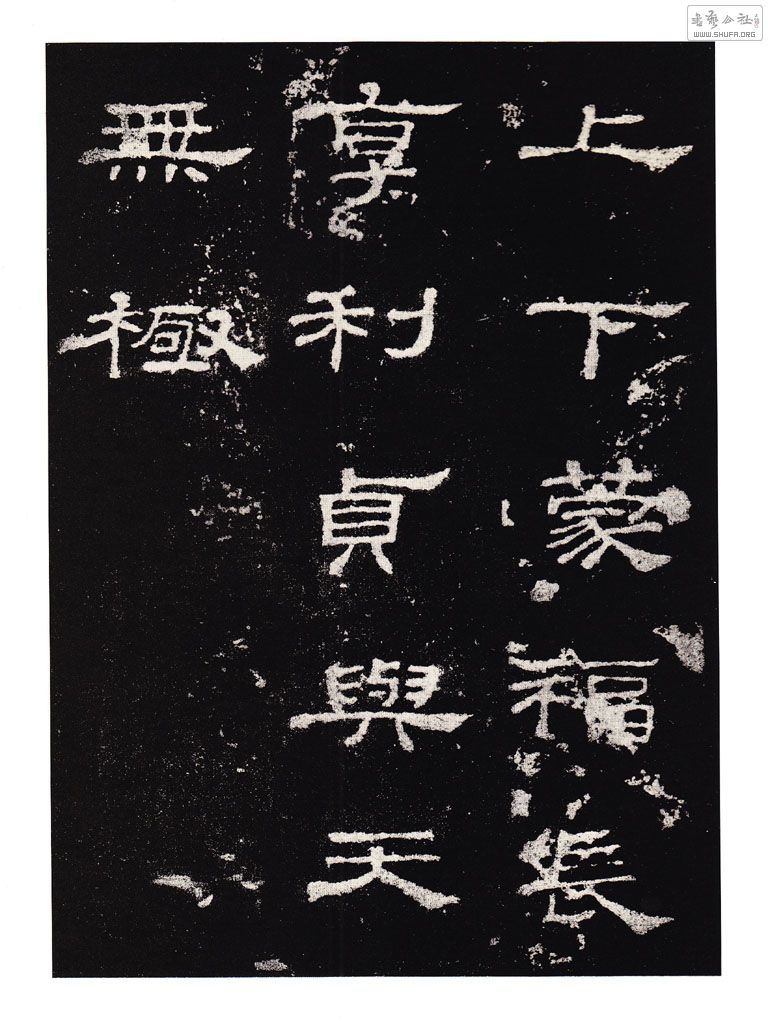 上下蒙福長
享利貞與天
無極
書藝公社
WWW.SHUFA.ORG